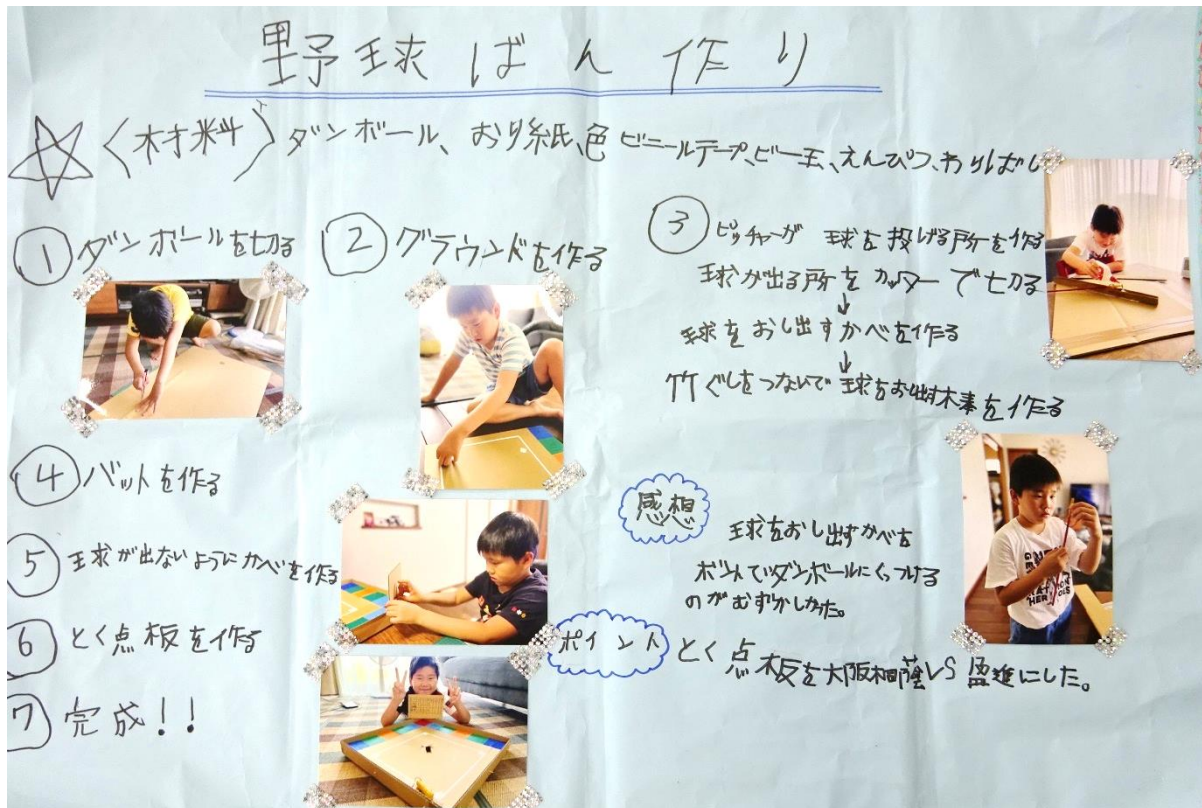 野球ばん作り
〈材料〉ダンボール、おり紙、色ビニールテープ、ビー玉、えんぴつ、わりばし
① ダンボールを切る
② グラウンドを作る
③ ピッチャーが 球を投げる所を作る
球が出る所をカッターで切る
↓
球をおし出すかべを作る
↓
竹ぐしをつないで球をおし出す棒を作る
④ バットを作る
⑤ 球が出ないようにかべを作る
⑥ とく点板を作る
⑦ 完成!!
感想
球をおし出すかべを
ボンドでダンボールにくっつける
のがむずかしかった。
ポイント とく点板を大阪桐蔭VS盈進にした。